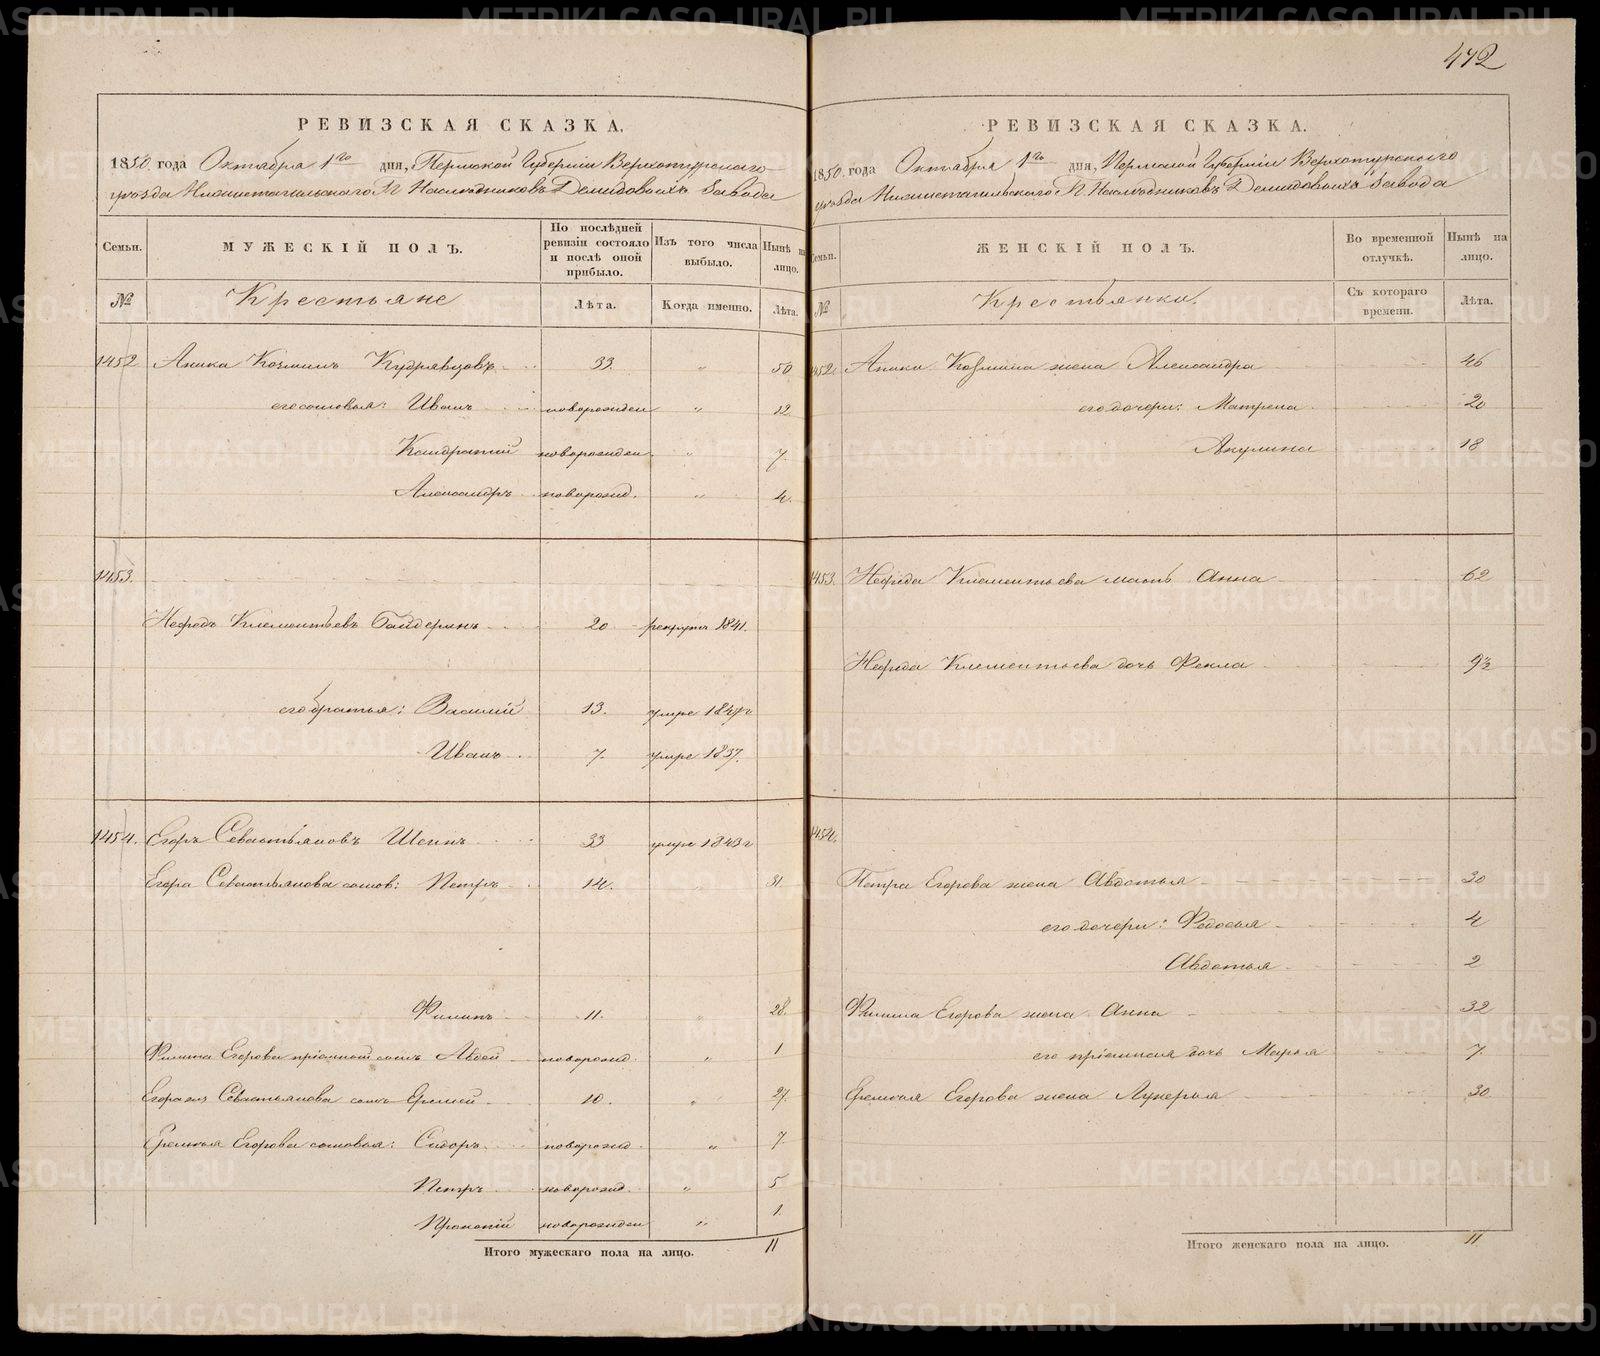 472
РЕВИЗСКАЯ СКАЗКА.
1850 года Октября 1го дня, Пермской Губерніи Верхотурскаго
уезда Нижнетагильскаго Гг Наследниковъ Демидовыхъ Завода
Семьи. МУЖЕСКІЙ ПОЛЪ. По послѣдней ревизіи состояло и послѣ оной прибыло. Изъ того числа выбыло. Нынѣ на лицо.
№ Крестьяне Лѣта. Когда именно. Лѣта.
1452 Аника Козминъ Кудрявцовъ 33 " 50
его сыновья: Иванъ новорожден " 12
Кондратій новорожден " 7
Александръ новорожд. " 4.
1453.
Нефедъ Клементьевъ 20 рекрутъ 1841.
его братья: Василій 13. умре
Иванъ 7. умре 1837.
1454. Егоръ Севастьяновъ 33 умре 1843 г
Егора Севастьянова сынов: Петръ 14. " 31
Филипъ 11. " 28.
Филипа Егорова пріемной сынъ Авдей новорожд. " 1
Егора Севастьянова сынъ Еремей 10. " 27.
Еремея Егорова сыновья: Сидоръ новорожд. " 7
Петръ новорожд. " 5
Прокопій новорожден " 1
Итого мужескаго пола на лицо. 11
РЕВИЗСКАЯ СКАЗКА.
1850 года Октября 1го дня, Пермской Губерніи Верхотурскаго
уезда Нижнетагильскаго Гг Наследниковъ Демидовыхъ Завода
Семьи. ЖЕНСКІЙ ПОЛЪ. Во временной отлучкѣ. Нынѣ на лицо.
№ Крестьянки. Съ котораго времени. Лѣта.
1452. Аники Козмина жена Александра 46
его дочери: Матрена 20
Акулина 18
1453. Нефеда Клементьева мать Анна 62
Нефеда Клементьева дочь Фекла
1454.
Петра Егорова жена Авдотья 30
его дочери: Федосья 4
Авдотья 2
Филипа Егорова жена Анна 32
его пріемная дочь Марья 7.
Еремея Егорова жена Лукерья 30
Итого женскаго пола на лицо. 11
METRIKI.GASO-URAL.RU